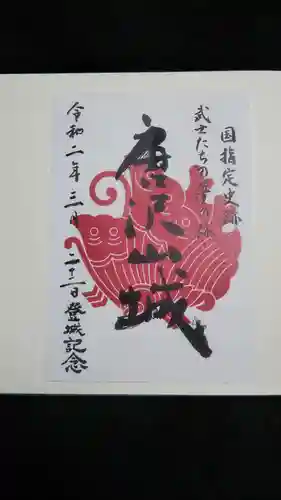 国指定史跡
武士たちの夢の跡
唐沢山城
令和二年三月二十二日登城記念